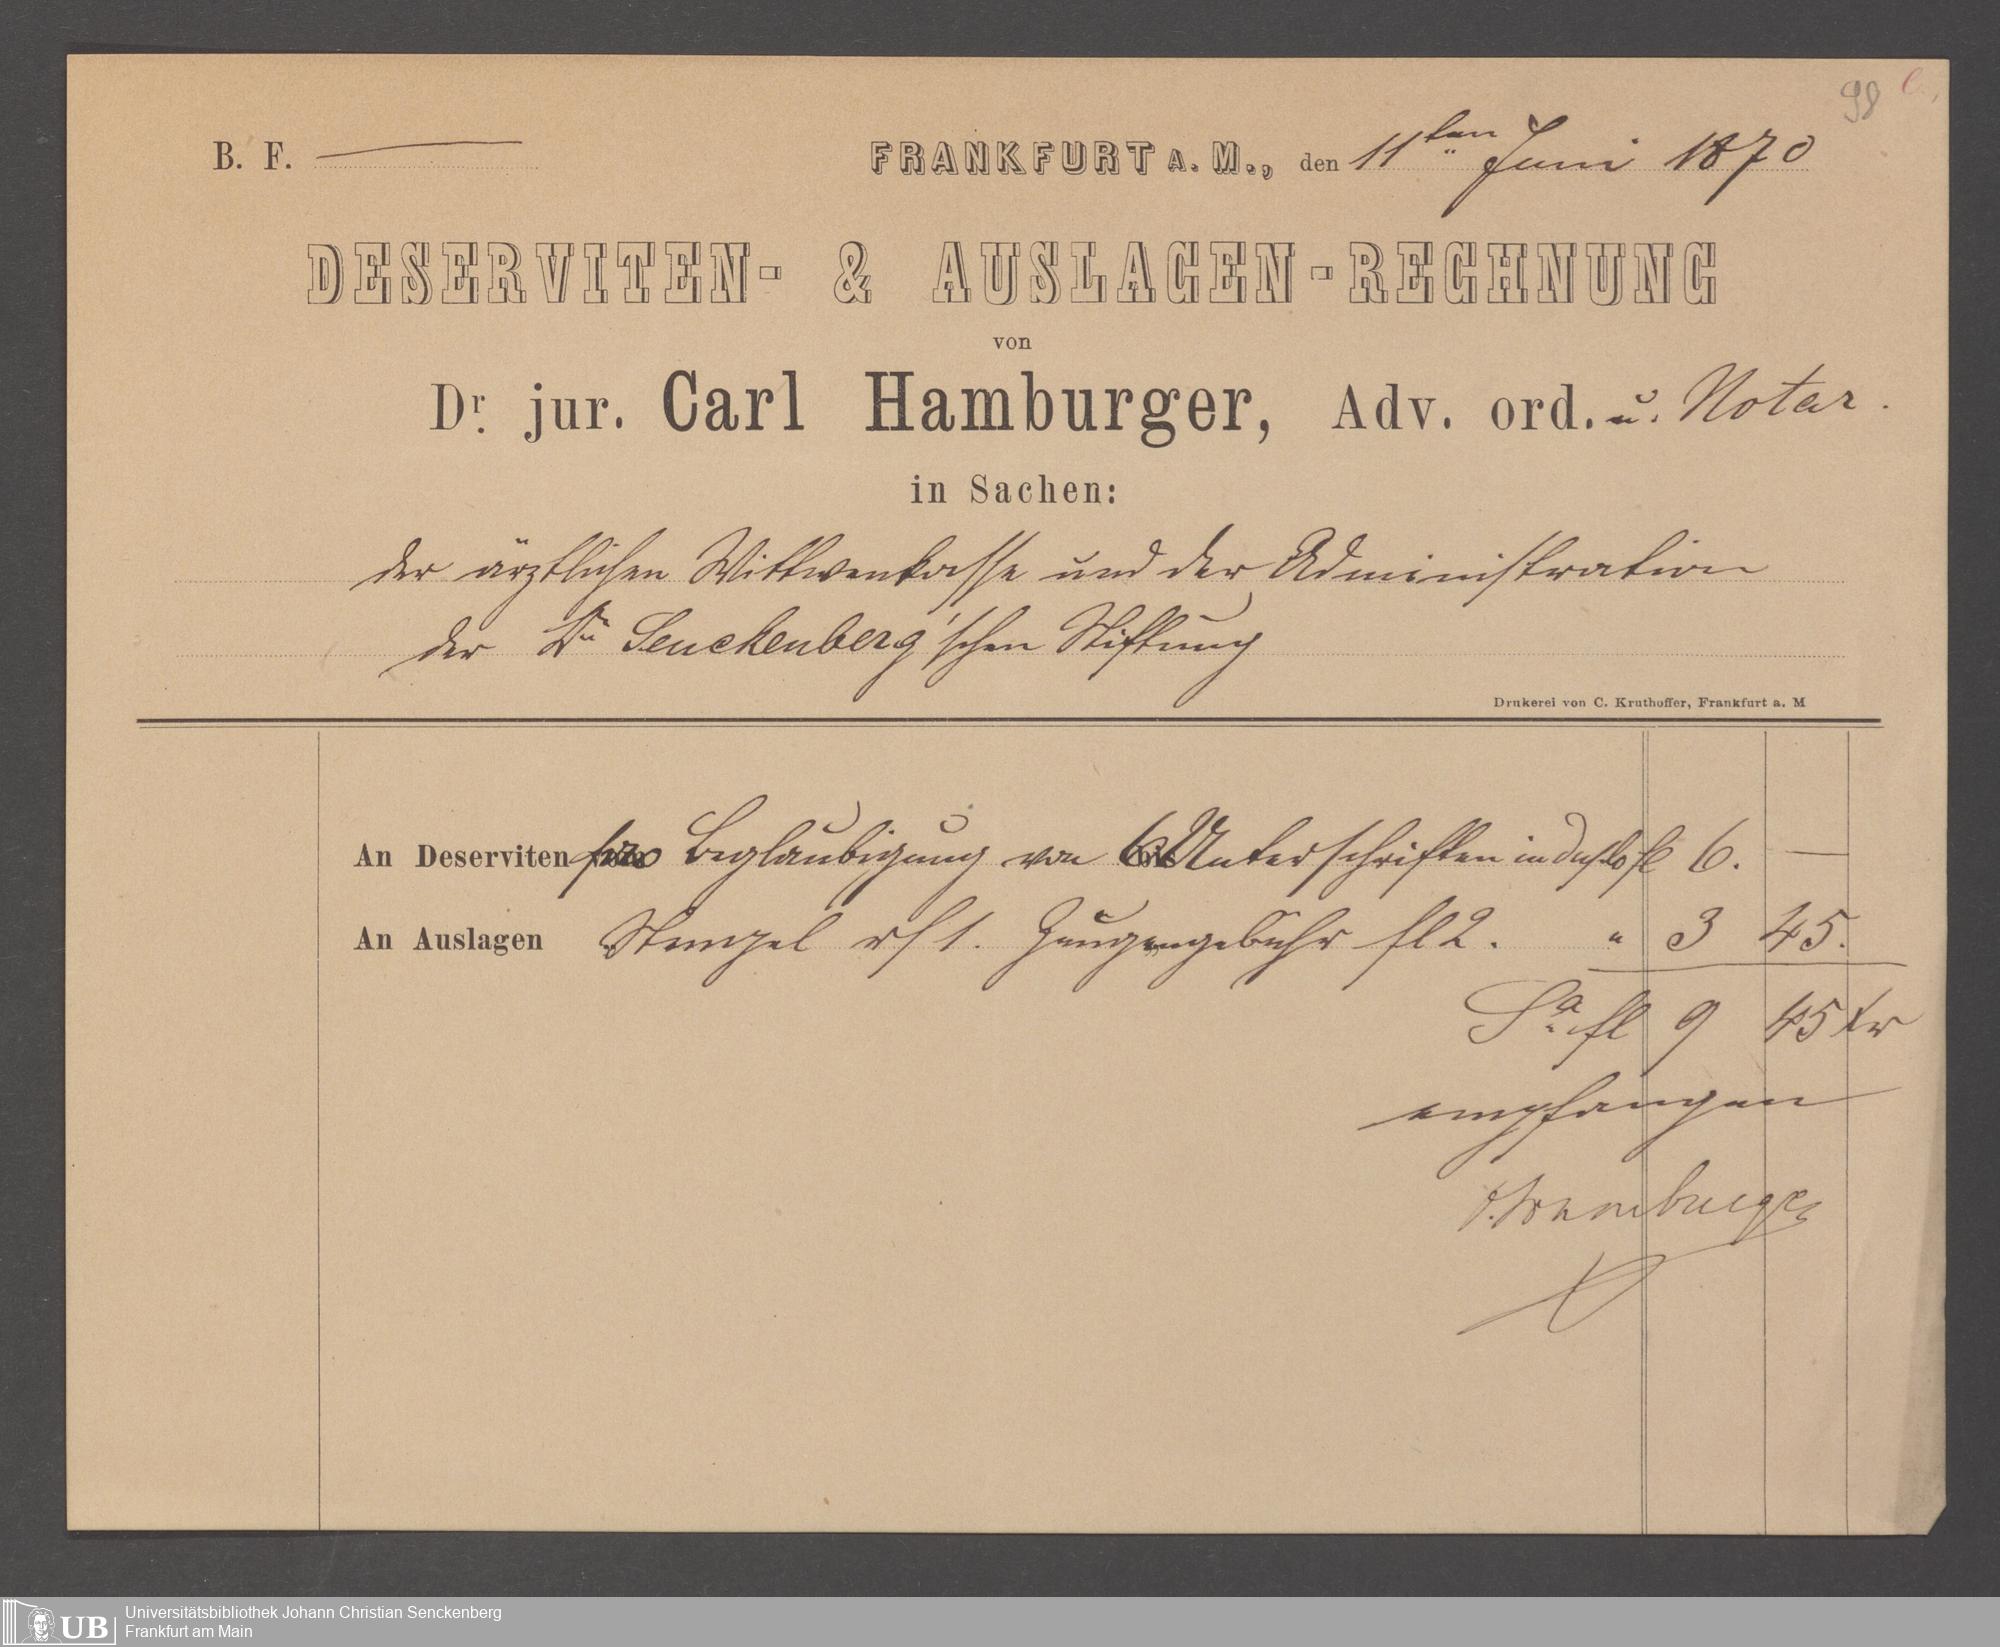 98
B. F.
FRANKFURT A. M., den 11ten Juni 1870
DESERVITEN- & AUSLAGEN-RECHNUNG
von
Dr. jur. Carl Hamburger, Adv. ord. u. Notar.
in Sachen:
der ärztlichen Wittwenkasse und der Administration
der Dr Senckenberg'schen Stiftung
Drukerei von C. Kruthoffer, Frankfurt a. M
An Deserviten pro Beglaubigung von 6 Unterschriften in duplo fl 6. —
An Auslagen Stempel rf 1. Zeugengebühr fl 2. " 3 45.
Sa fl 9 45 Kr
empfangen
Hamburger
UB
Universitätsbibliothek Johann Christian Senckenberg
Frankfurt am Main